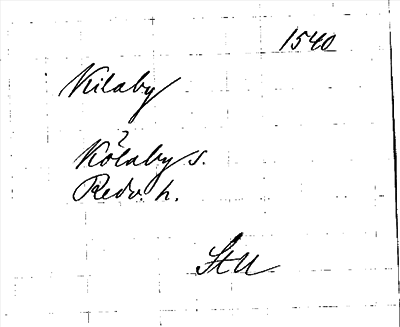 1540
Kilaby
?
Kölaby s.
Redv. h.
StU